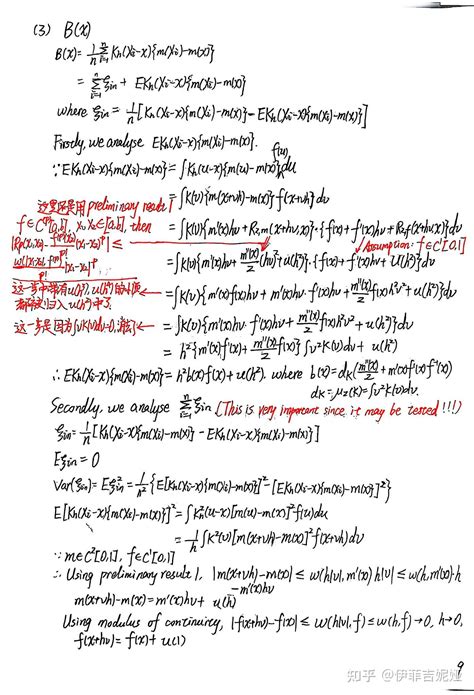 (3) B(x)
B(x) = 1/n Σ_{i=1}^n K_h(X_i-x){m(X_i)-m(x)}
= Σ_{i=1}^n ξ_in + EK_h(X_i-x){m(X_i)-m(x)}
where ξ_in = 1/n [K_h(X_i-x){m(X_i)-m(x)} - EK_h(X_i-x){m(X_i)-m(x)}]
Firstly, we analyse EK_h(X_i-x){m(X_i)-m(x)}.
∵ EK_h(X_i-x){m(X_i)-m(x)} = ∫K_h(u-x){m(u)-m(x)}f(u)du
这里还是用 preliminary result 1
= ∫K(v){m(x+vh)-m(x)}f(x+vh)dv
f∈C^p[a,b], x_1,x_2∈[a,b], then
= ∫K(v){m'(x)hv + R_{2,m}(x+hv,x)}·{f(x)+f'(x)hv+R_{2,f}(x+hv,x)}dv
Assumption: f∈C'[0,1]
= ∫K(v){m'(x)hv + m''(x)/2 (hv)²+u(h²)}·{f(x)+f'(x)hv+u(h)}dv
这一步中带有u(h²),u(h³)的
= ∫K(v){m'(x)f(x)hv + m'(x)hv·f'(x)hv + m''(x)/2 f(x)h²v² + u(h²)}dv
这一步是因为∫vK(v)dv=0,消去
= ∫K(v){m'(x)hv·f'(x)hv + m''(x)/2 f(x)h²v² + u(h²)}dv
= h²{m'(x)f'(x) + m''(x)/2 f(x)}∫v²K(v)dv + u(h²)
∴ EK_h(X_i-x){m(X_i)-m(x)} = h²b(x)f(x)+u(h²), where b(x)=d_K(m''(x)/2 + m'(x)f'(x)f^{-1}(x))
d_K=μ_2(K)=∫v²K(v)dv.
Secondly, we analyse Σ_{i=1}^n ξ_in (This is very important since it may be tested!!!)
ξ_in = 1/n [K_h(X_i-x){m(X_i)-m(x)} - EK_h(X_i-x){m(X_i)-m(x)}]
Eξ_in = 0
Var(ξ_in) = Eξ²_in = 1/n² {E[K_h(X_i-x){m(X_i)-m(x)}]² - [EK_h(X_i-x){m(X_i)-m(x)}]²}
E[K_h(X_i-x){m(X_i)-m(x)}]² = ∫K_h²(u-x)[m(u)-m(x)]²f(u)du
= 1/h ∫K²(v)[m(x+vh)-m(x)]²f(x+vh)dv
∵ m∈C²[0,1], f∈C'[0,1]
∴ Using preliminary result 1, |m(x+vh)-m(x)-m'(x)hv| ≤ w(h|v|,m')h|v| ≤ w(h,m')·h
m(x+vh)-m(x)=m'(x)hv+u(h)
Using modulus of continuity, |f(x+hv)-f(x)| ≤ w(h|v|,f) ≤ w(h,f)→0, h→0,
f(x+hv)=f(x)+u(1)
9
知乎 @伊菲吉妮娅